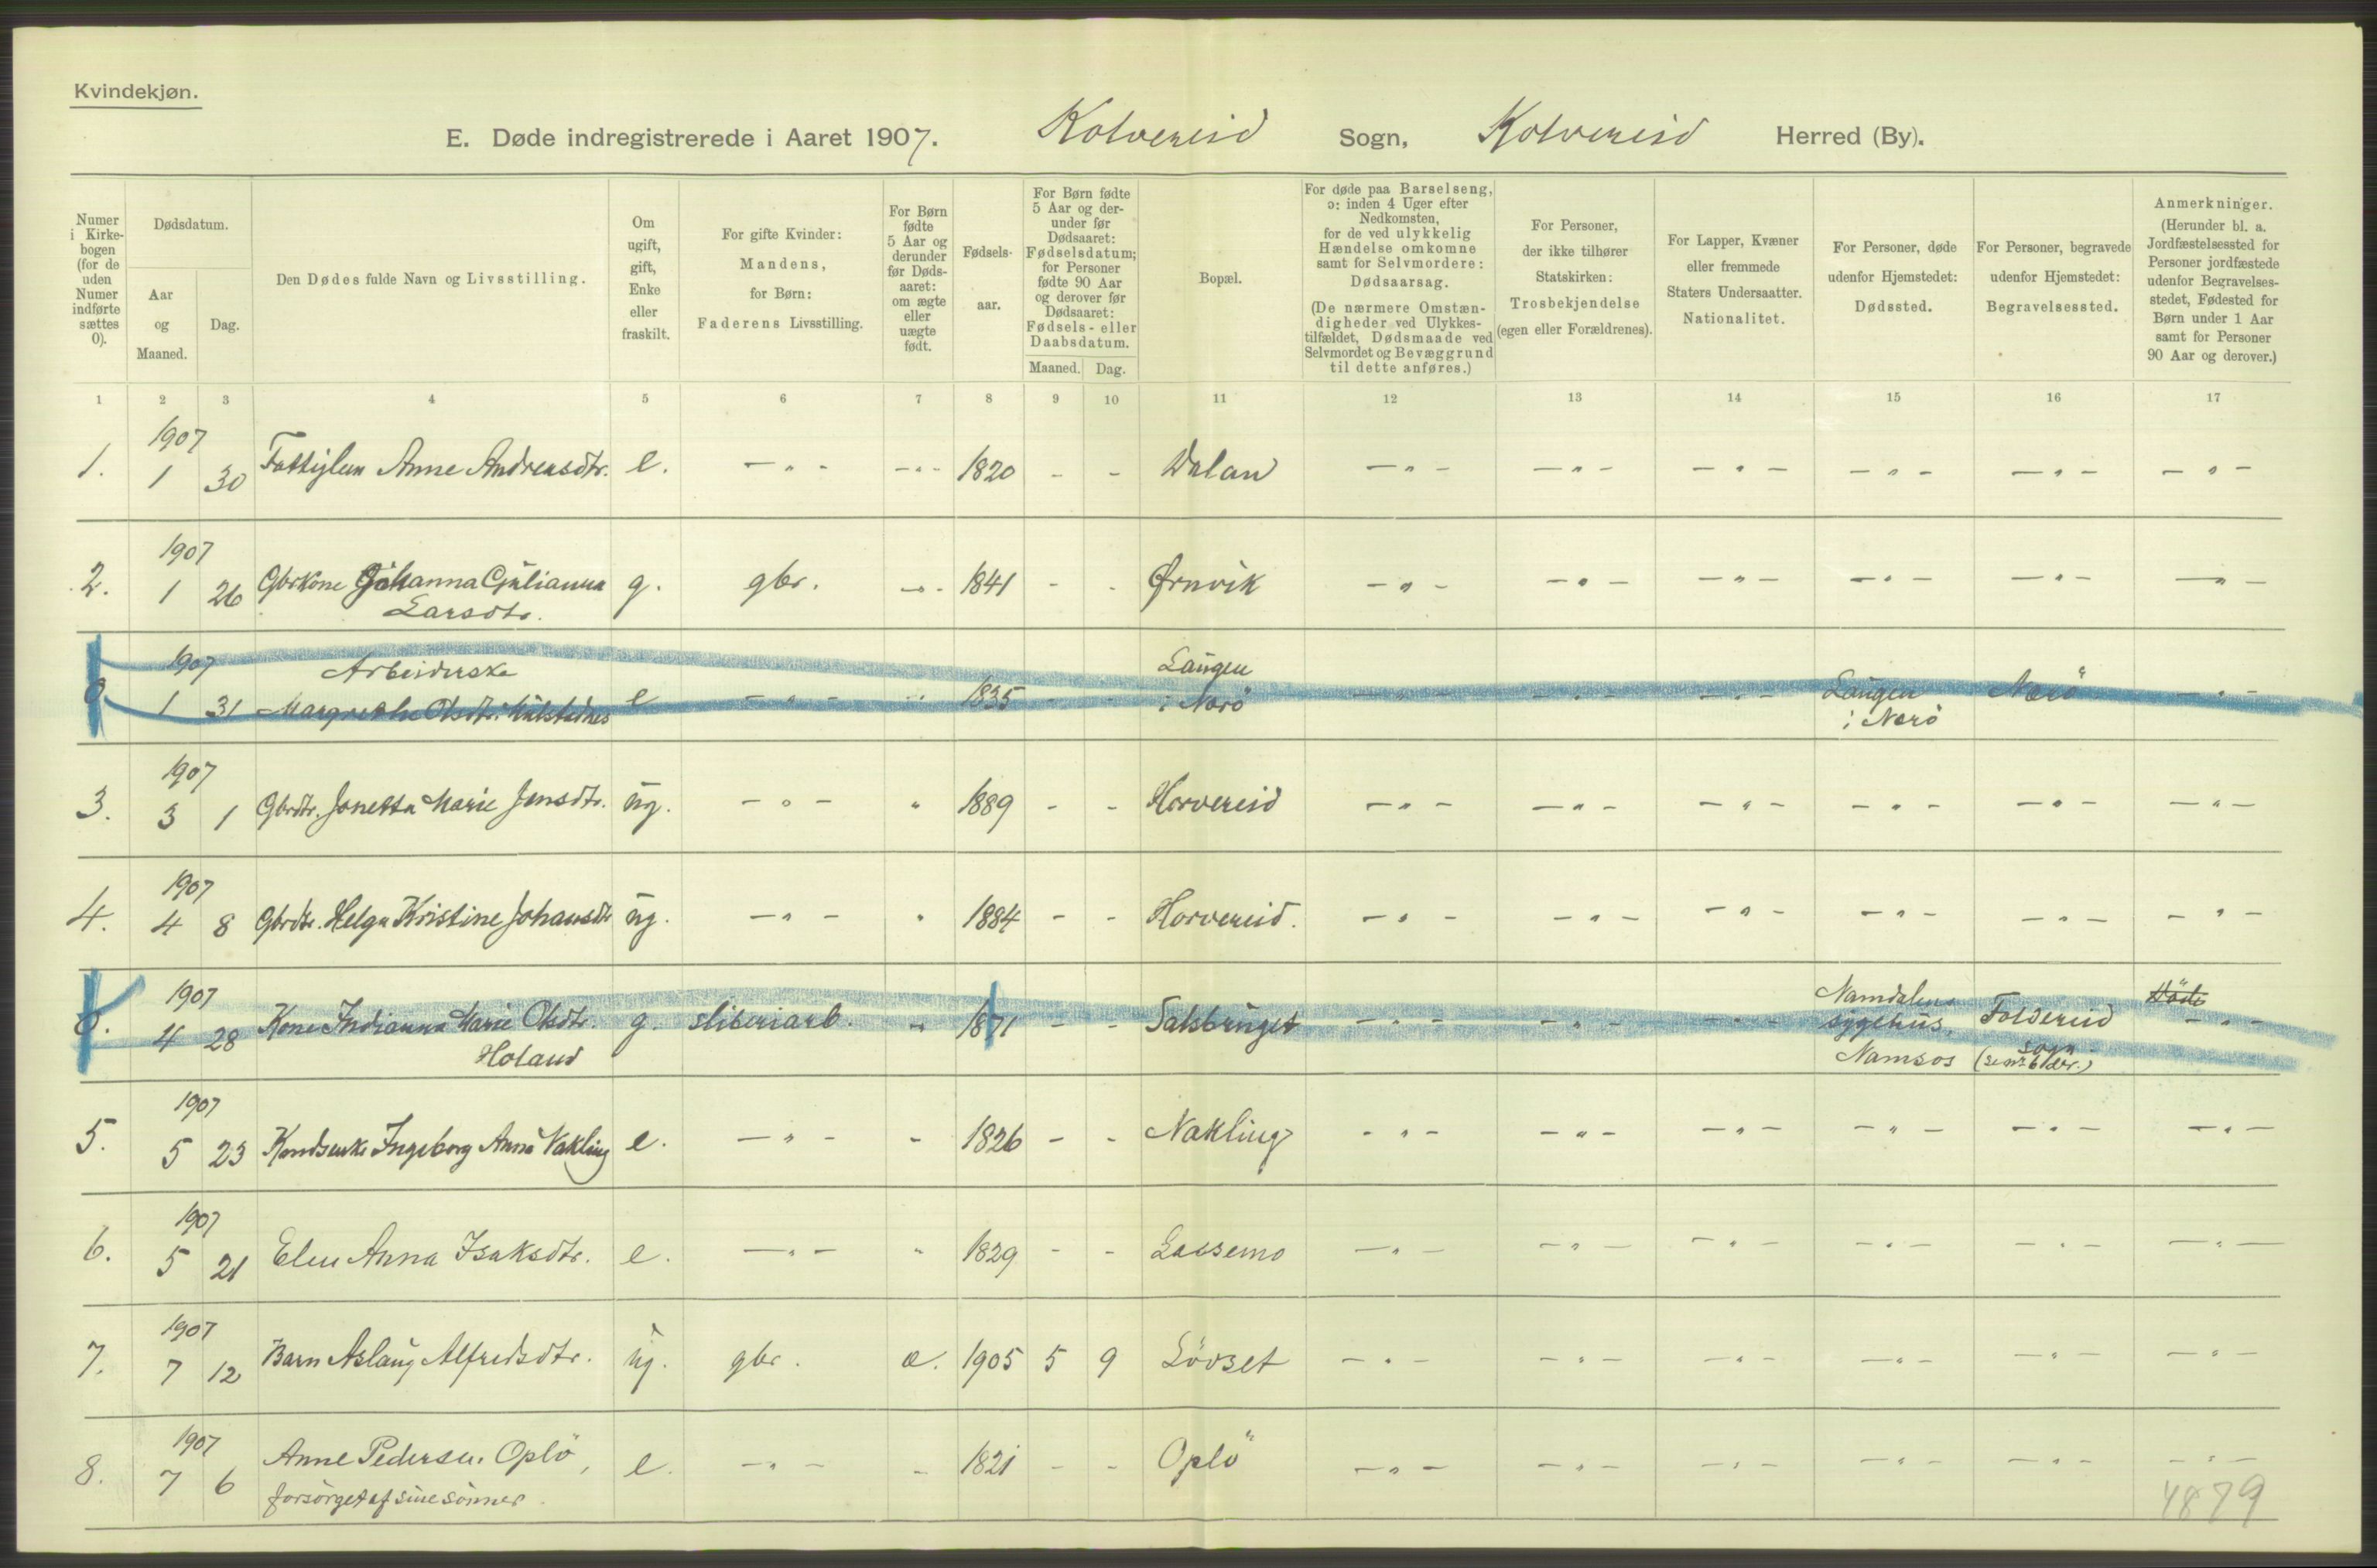 Kvindekjøn.
E. Døde indregistrerede i Aaret 1907. Kolvereid Sogn, Kolvereid Herred (By).
Numer i Kirkebogen (for de uden Numer indførte sættes 0).
Dødsdatum.
Aar og Maaned.
Dag.
Den Dødes fulde Navn og Livsstilling.
Om ugift, gift, Enke eller fraskilt.
For gifte Kvinder: Mandens, for Børn: Faderens Livsstilling.
For Børn fødte 5 Aar og derunder før Dødsaaret: om ægte eller uægte født.
Fødselsaar.
For Børn fødte 5 Aar og derunder før Dødsaaret: Fødselsdatum; for Personer fødte 90 Aar og derover før Dødsaaret: Fødsels- eller Daabsdatum.
Maaned. Dag.
Bopæl.
For døde paa Barselseng, ɔ: inden 4 Uger efter Nedkomsten, for de ved ulykkelig Hændelse omkomne samt for Selvmordere: Dødsaarsag.
(De nærmere Omstændigheder ved Ulykkestilfældet, Dødsmaade ved Selvmordet og Bevæggrund til dette anføres.)
For Personer, der ikke tilhører Statskirken: Trosbekjendelse (egen eller Forældrenes).
For Lapper, Kvæner eller fremmede Staters Undersaatter. Nationalitet.
For Personer, døde udenfor Hjemstedet: Dødssted.
For Personer, begravede udenfor Hjemstedet: Begravelsessted.
Anmerkninger.
(Herunder bl. a. Jordfæstelsessted for Personer jordfæstede udenfor Begravelsesstedet, Fødested for Børn under 1 Aar samt for Personer 90 Aar og derover.)
1 2 3 4 5 6 7 8 9 10 11 12 13 14 15 16 17
1907
1. 1 30 Fattiglem Anne Andreasdtr. e. - " - - " - 1820 - - Dalan - " - - " - - " - - " - - " - - " -
1907
2. 1 26 Gbrkone Johanna Gjulianna g. gbr. - " - 1841 - - Ørnvik - " - - " - - " - - " - - " - - " -
Larsdtr.
1907 Arbeiderske Laugen
0 1 31 Margrethe Olsdtr. e - " - - " - 1835 - - i Nærö - " - - " - - " - Laugen Nærö - " -
i Nærö
1907
3. 3 1 Gbrdtr. Jonetta Marie Jensdtr. ug. - " - " 1889 - - Horvereid - " - - " - - " - - " - - " - - " -
1907
4. 4 8 Gbrdtr. Helga Kristine Johansdtr ug. - " - " 1884 - - Horvereid. - " - - " - - " - - " - - " - - " -
1907 Namdalens Döde
0. 4 28 Kone Indianna Marie Olsdtr. g. sliberiarb. - " 1871 - - Salsbruget - " - - " - - " - sygehus, Foldereid - " -
Holand Namsos sogn
(se nr. 6 der.)
1907
5. 5 23 Ingeborg Anna Nakling e. - " - - 1826 - - Nakling - " - - " - - " - - " - - " - - " -
1907
6. 5 21 Elen Anna Isaksdtr. e. - " - " 1829 - - Lassemo - " - - " - - " - - " - - " - - " -
1907
7. 7 12 Barn Aslaug Alfredsdtr. ug. gbr. æ. 1905 5 9 Lövset - " - - " - - " - - " - - " - - " -
1907
8. 7 6 Anne Pedersen Oplö, e. - " - - 1821 - - Oplö - " - - " - - " - - " - - " - - " -
forsörget af sine sönner.
4879